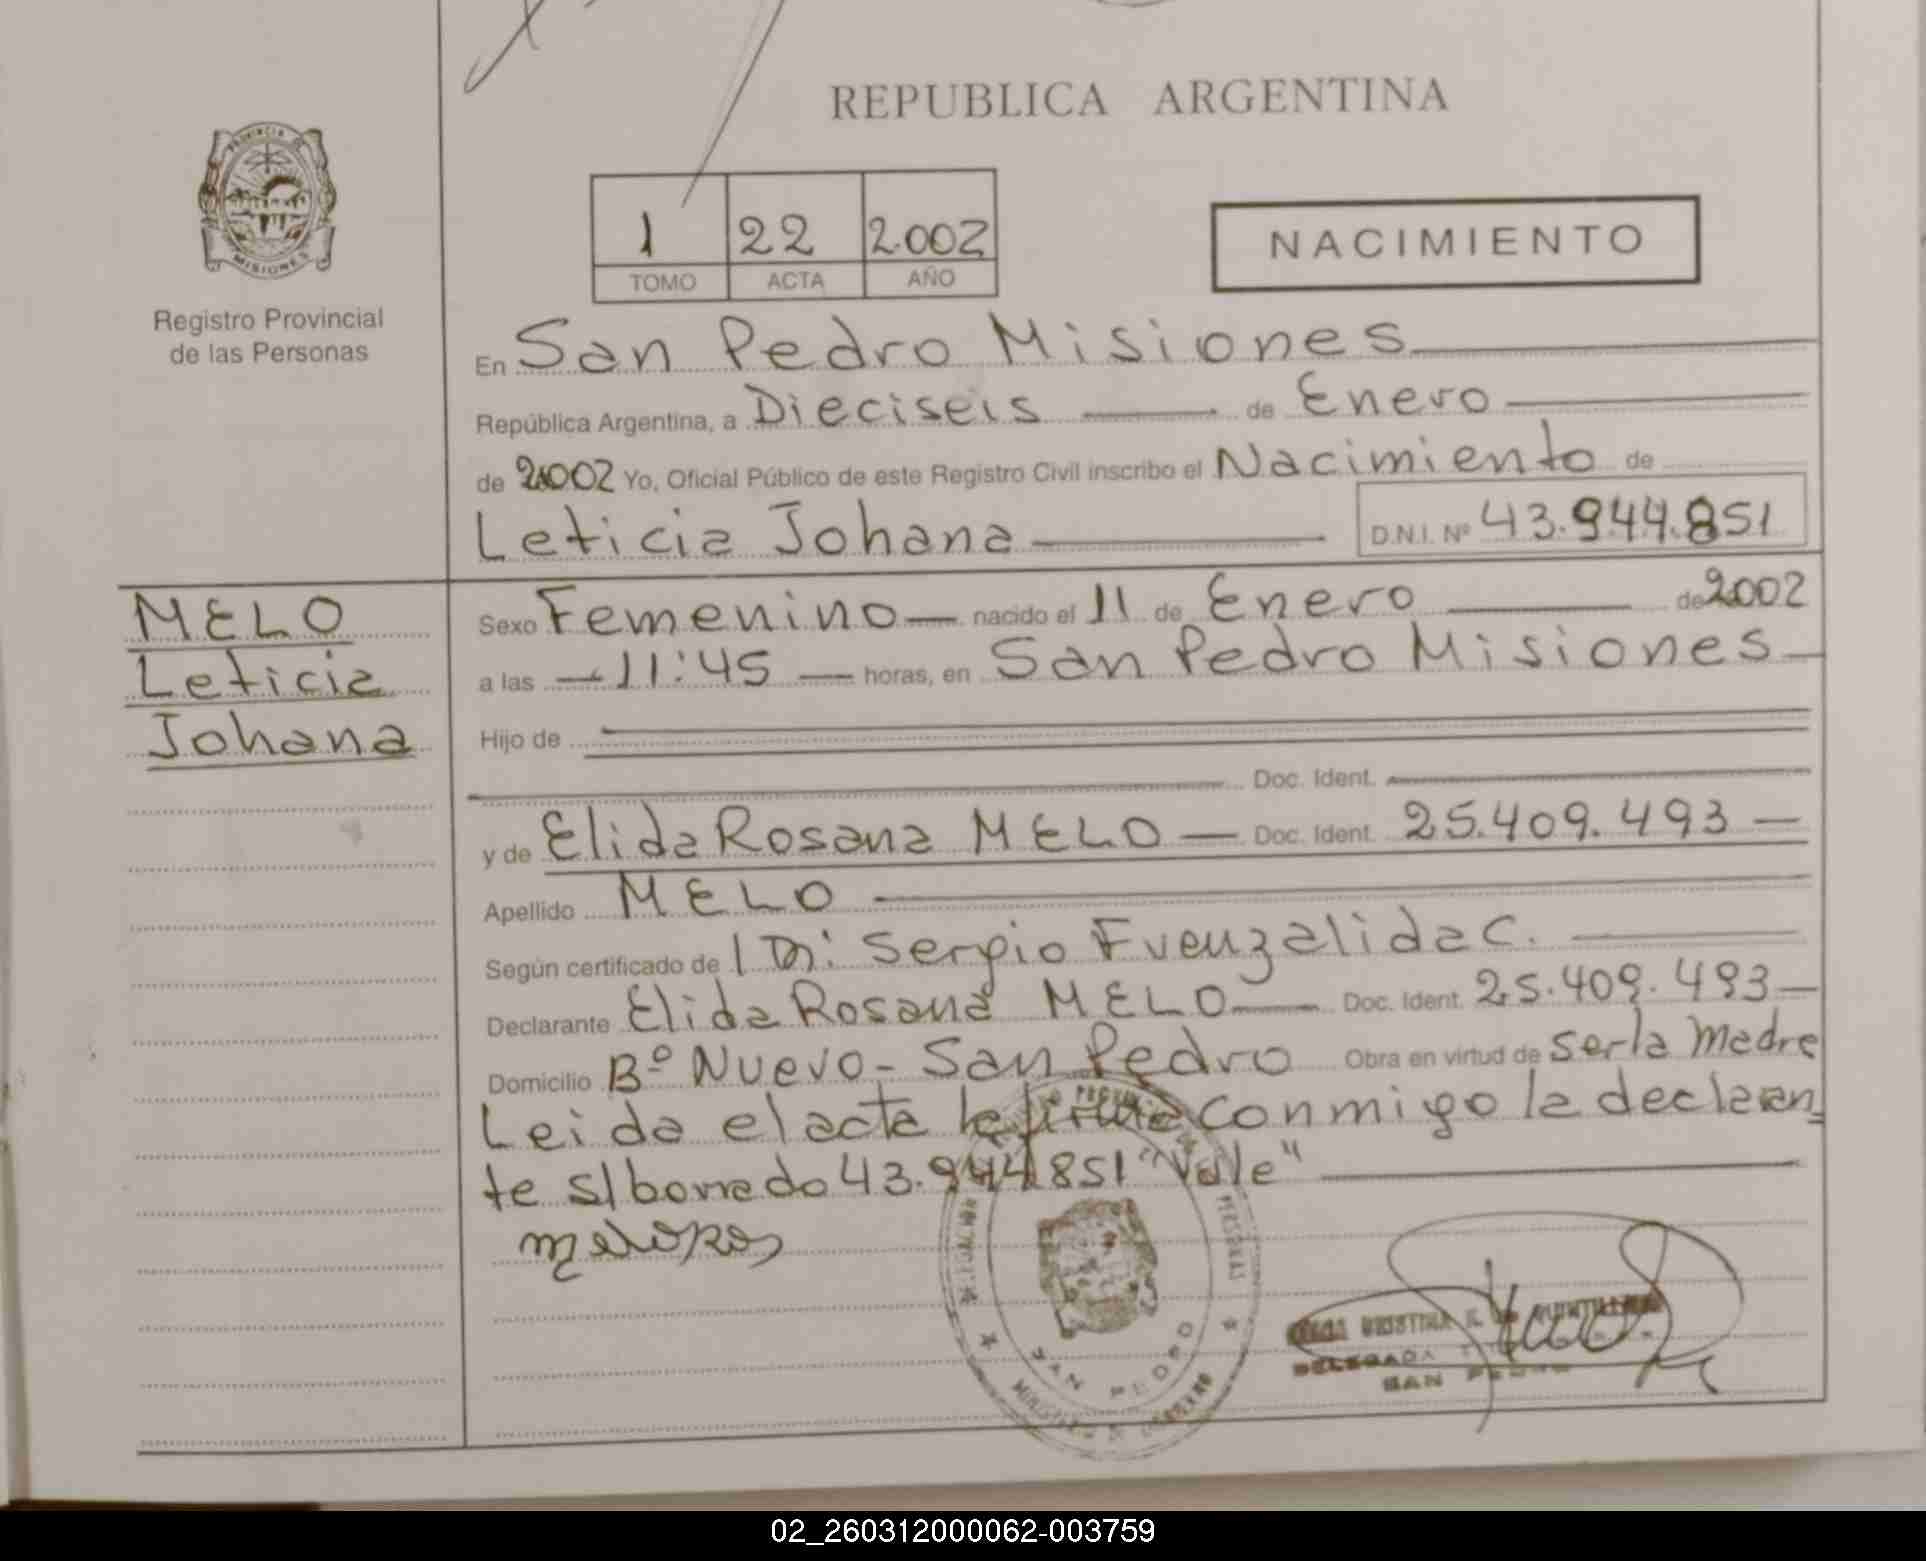 REPUBLICA ARGENTINA
PROVINCIA DE
MISIONES
Registro Provincial
de las Personas
1 22 2.002
TOMO ACTA AÑO
NACIMIENTO
En San Pedro Misiones
República Argentina, a Dieciseis de Enero
de 2002 Yo, Oficial Público de este Registro Civil inscribo el Nacimiento de
Leticia Johana D.N.I. Nº 43.944.851
MELO
Leticia
Johana
Sexo Femenino nacido el 11 de Enero de 2002
a las 11:45 horas, en San Pedro Misiones
Hijo de
Doc. Ident.
y de Elida Rosana MELO Doc. Ident. 25.409.493
Apellido MELO
Según certificado de Sergio Fuenzalida C.
Declarante Elida Rosana MELO Doc. Ident. 25.409.493
Domicilio Bº Nuevo - San Pedro Obra en virtud de ser la madre
Leida el acta la firma conmigo la declaran
te s/borrado 43.944.851 "Vale"
SAN PEDRO
DELEGADA
SAN PEDRO
02_260312000062-003759